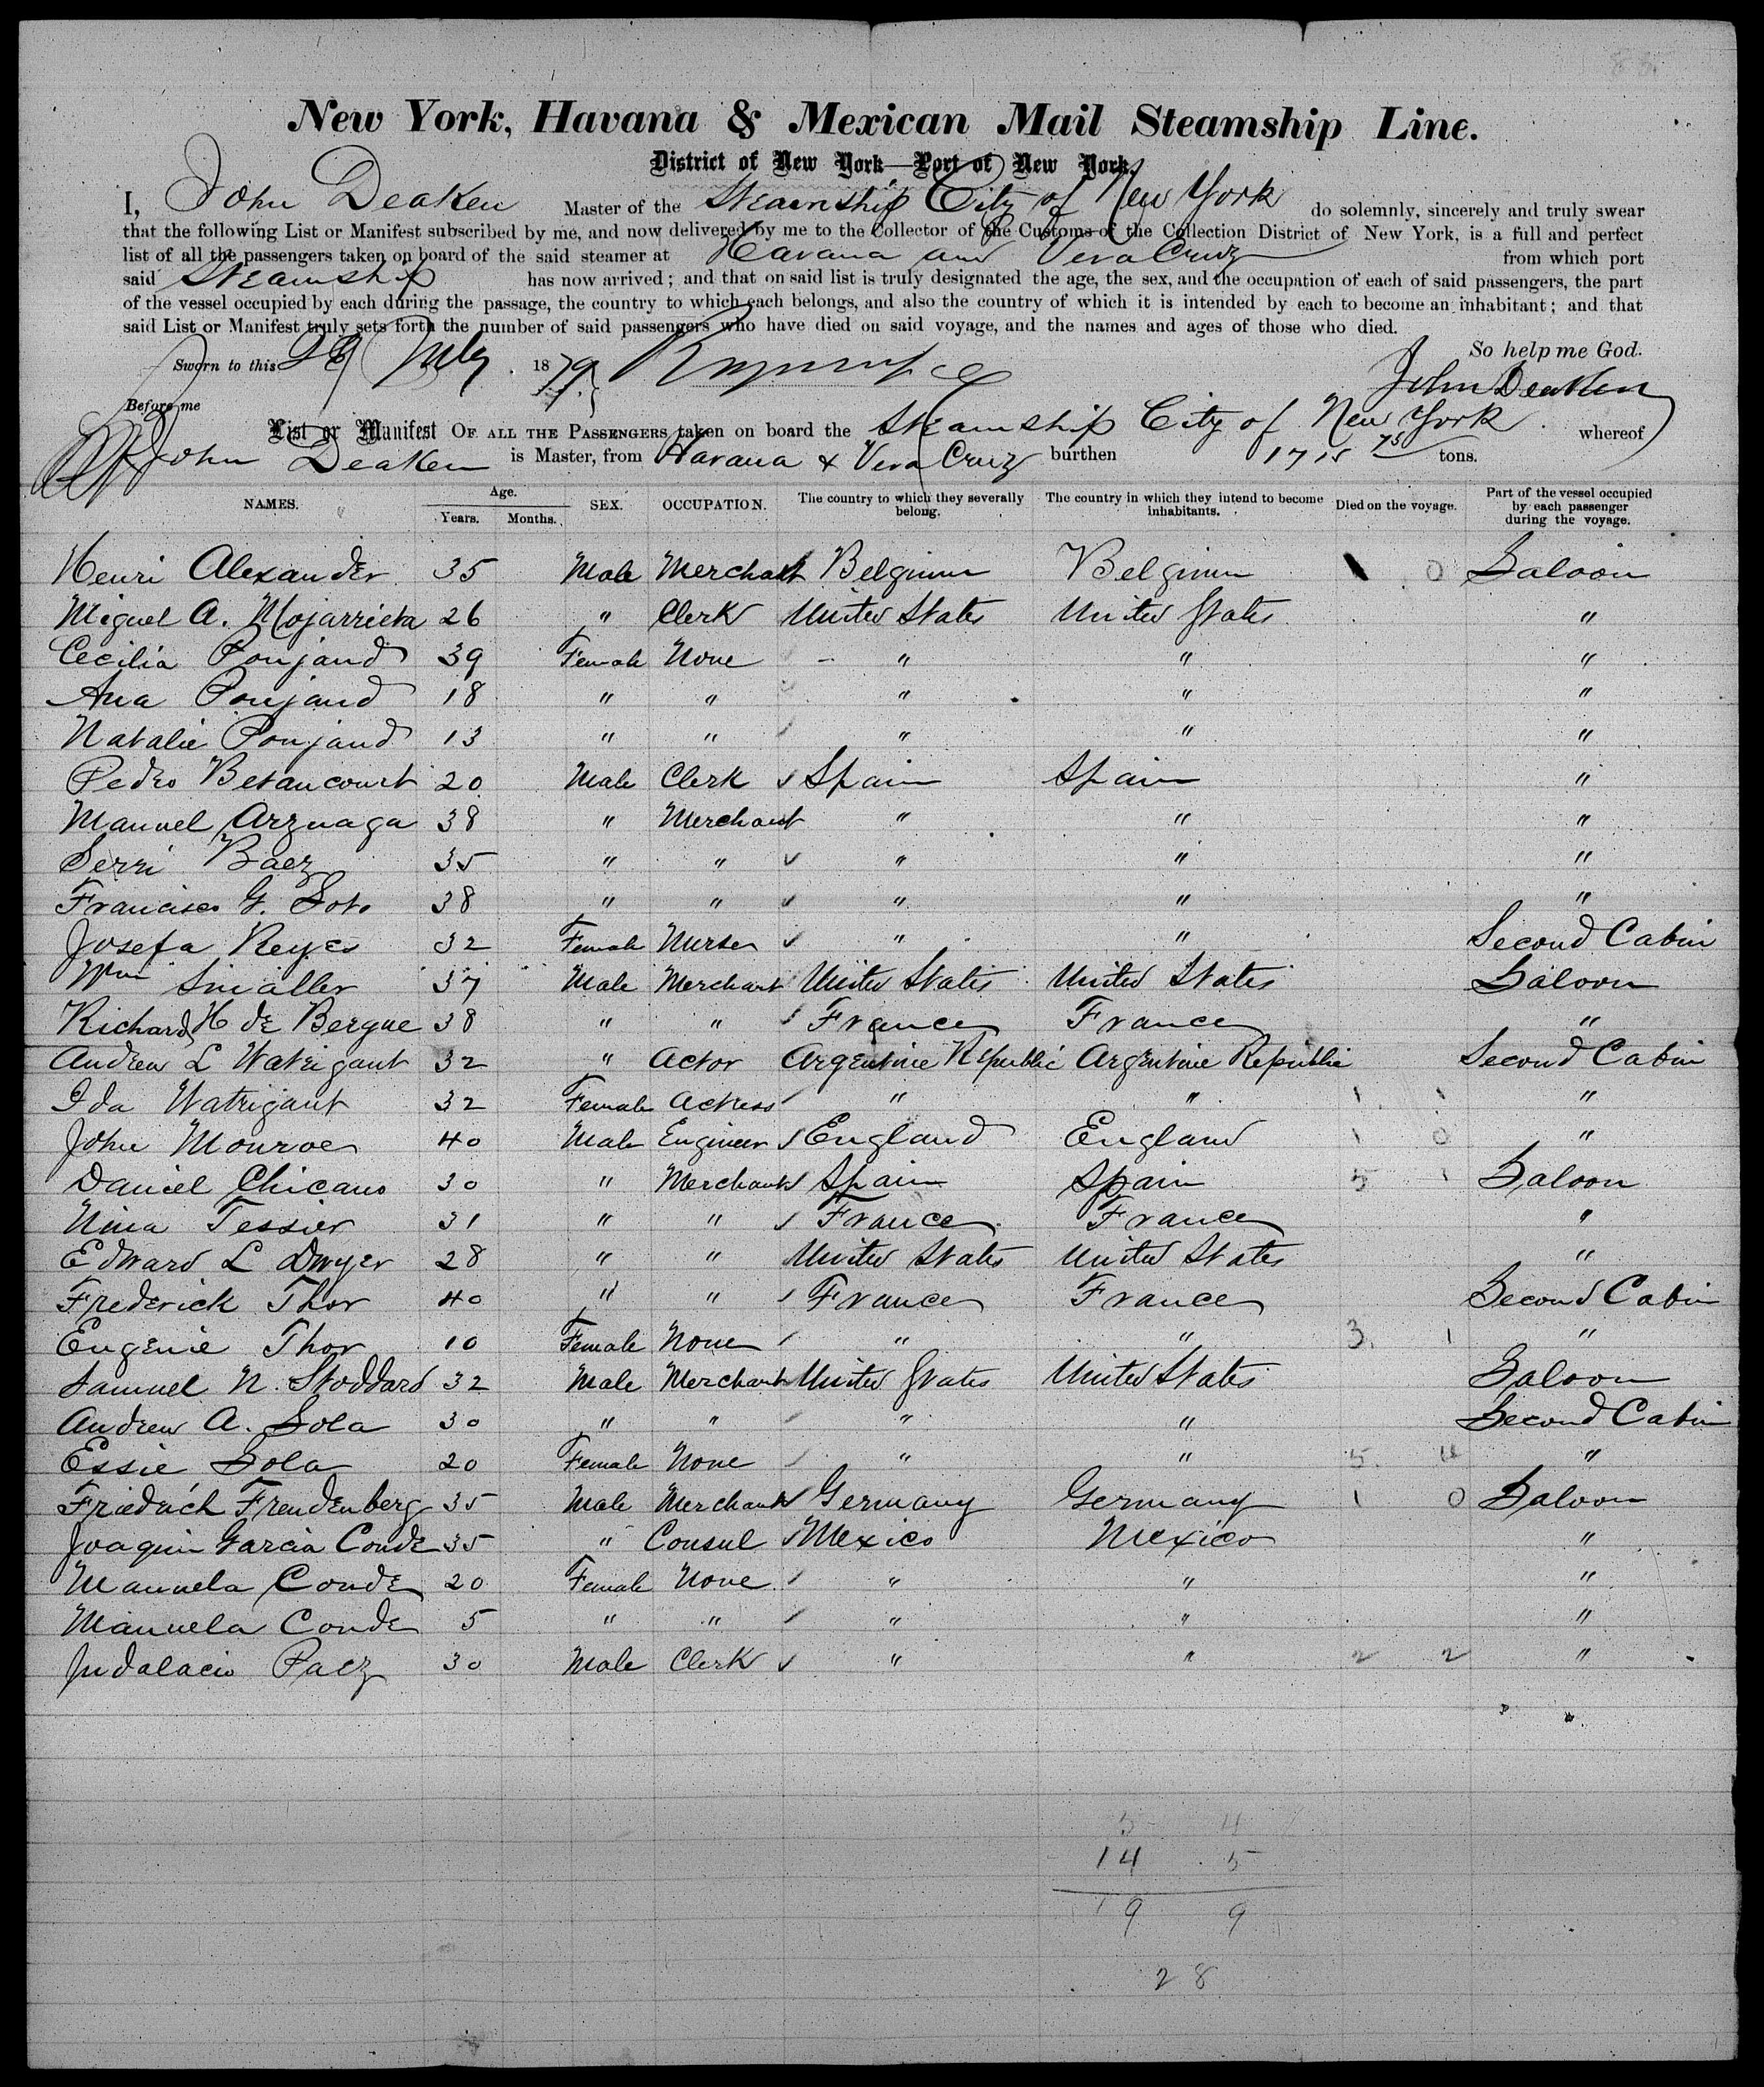 New York, Havana & Mexican Mail Steamship Line.
District of New York—Port of New York.
I, John Deaken Master of the Steamship City of New York do solemnly, sincerely and truly swear
that the following List or Manifest subscribed by me, and now delivered by me to the Collector of the Customs of the Collection District of New York, is a full and perfect
list of all the passengers taken on board of the said steamer at Havana and Vera Cruz from which port
said Steamship has now arrived; and that on said list is truly designated the age, the sex, and the occupation of each of said passengers, the part
of the vessel occupied by each during the passage, the country to which each belongs, and also the country of which it is intended by each to become an inhabitant; and that
said List or Manifest truly sets forth the number of said passengers who have died on said voyage, and the names and ages of those who died.
So help me God.
Sworn to this 28 July 1879 John Deaken
Before me
List or Manifest OF ALL THE PASSENGERS taken on board the Steamship City of New York whereof
John Deaken is Master, from Havana & Vera Cruz burthen 1715 75 tons.
NAMES. Age. Years. Months. SEX. OCCUPATION. The country to which they severally belong. The country in which they intend to become inhabitants. Died on the voyage. Part of the vessel occupied by each passenger during the voyage.
Henri Alexander 35 Male Merchant Belgium Belgium 1 0 Saloon
Miguel A. Mojarrieta 26 " Clerk United States United States "
Cecilia Poujaud 39 Female None " " "
Ana Poujaud 18 " " " " "
Natalie Poujaud 13 " " " " "
Pedro Betancourt 20 Male Clerk Spain Spain "
Manuel Arzuaga 38 " Merchant " " "
Serri Baez 35 " " " " "
Francisco G. Soto 38 " " " " "
Josefa Reyes 32 Female Nurse " " Second Cabin
Wm Smaller 37 Male Merchant United States United States Saloon
Richard H de Bergue 38 " " France France "
Andrew L Watrigant 32 " Actor Argentine Republic Argentine Republic Second Cabin
Ida Watrigant 32 Female Actress " " 1 1 "
John Monroe 40 Male Engineer England England 1 0 "
Daniel Chicano 30 " Merchant Spain Spain 5 1 Saloon
Nina Tessier 31 " " France France "
Edward L Dwyer 28 " " United States United States "
Frederick Thor 40 " " France France Second Cabin
Eugenie Thor 10 Female None " " 3 1 "
Samuel N. Stoddard 32 Male Merchant United States United States Saloon
Andrew A. Sola 30 " " " " Second Cabin
Essie Sola 20 Female None " " 5 4 "
Friedrich Freudenberg 35 Male Merchant Germany Germany 1 0 Saloon
Joaquin Garcia Conde 35 " Consul Mexico Mexico "
Manuela Conde 20 Female None " " "
Manuela Conde 5 " " " " "
Indalacio Paez 30 Male Clerk " " 2 2 "
5 4
14 5
19 9
28